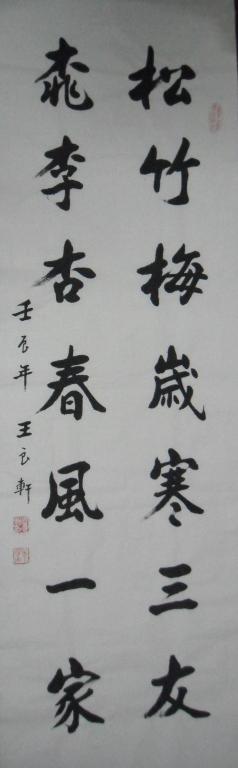 松竹梅歳寒三友
桃李杏春風一家
壬辰年 王良軒